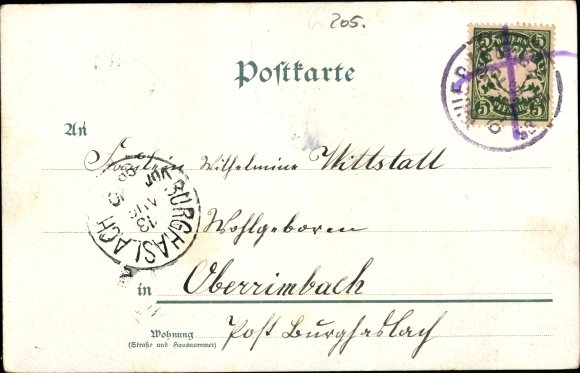 205.
5 BAYERN 5
5 PFENNIG 5
Postkarte
An
Fräulein Wilhelmine Wittstatt
BURGHASLACH
13
AUG
Wohlgeboren
in Oberrimbach
Wohnung
(Straße und Hausnummer)
Post Burghaslach